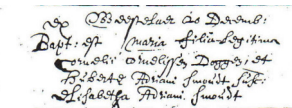 ex Westelaer 20 Decemb:
Bapt: est maria filia legitima
Cornelii Cornelissen Dogger; et
Huberta Adriani Smoudt susc:
Elisabetha Adriani Smoudt